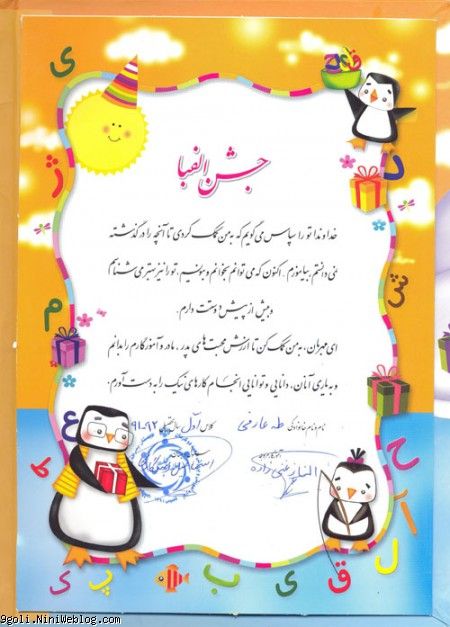 جشن الفبا
خداوندا تو را سپاس می‌گویم که به من کمک کردی تا آنچه را در گذشته
نمی دانستم بیاموزم. اکنون که می توانم بخوانم و بنویسم، تو را نیز بهتر می شناسم
و بیش از پیش دوستت دارم.
ای مهربان، به من کمک کن تا ارزش محبت های پدر، مادر و آموزگارم را بدانم
و به یاری آنان، دانایی و توانایی انجام کارهای نیک را به دست آورم.
نام و نام خانوادگی: طه عارفی کلاس: اول سال تحصیلی ۹۲-۹۱
ی
ژ
م
ع
ط
د
ش
ح
آ
ل
ک پ ب ی ق
9goli.NiniWeblog.com